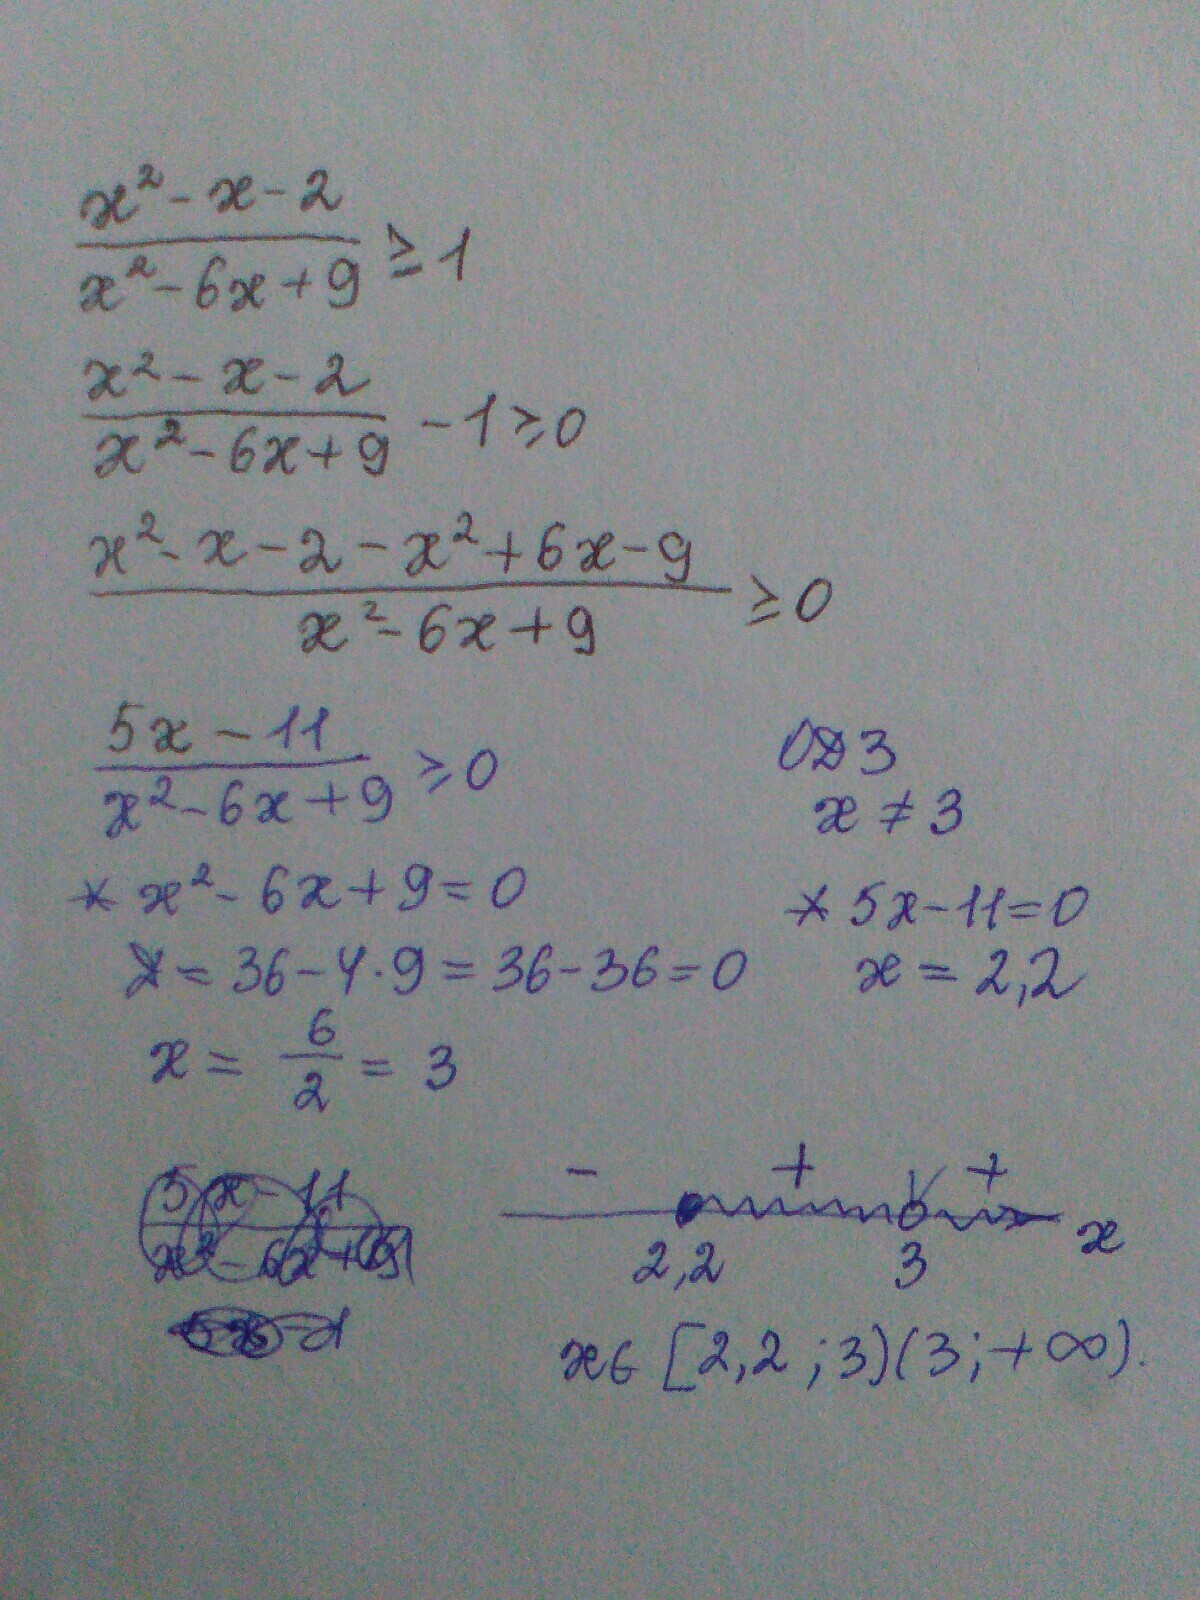 x² - x - 2 / x² - 6x + 9 ≥ 1
x² - x - 2 / x² - 6x + 9 - 1 ≥ 0
x² - x - 2 - x² + 6x - 9 / x² - 6x + 9 ≥ 0
5x - 11 / x² - 6x + 9 ≥ 0
ОДЗ
x ≠ 3
* x² - 6x + 9 = 0
* 5x - 11 = 0
Д = 36 - 4 · 9 = 36 - 36 = 0
x = 2,2
x = 6 / 2 = 3
5x - 11 / x² - 6x + 9
- + +
2,2 3 x
x ∈ [2,2 ; 3)(3; +∞).